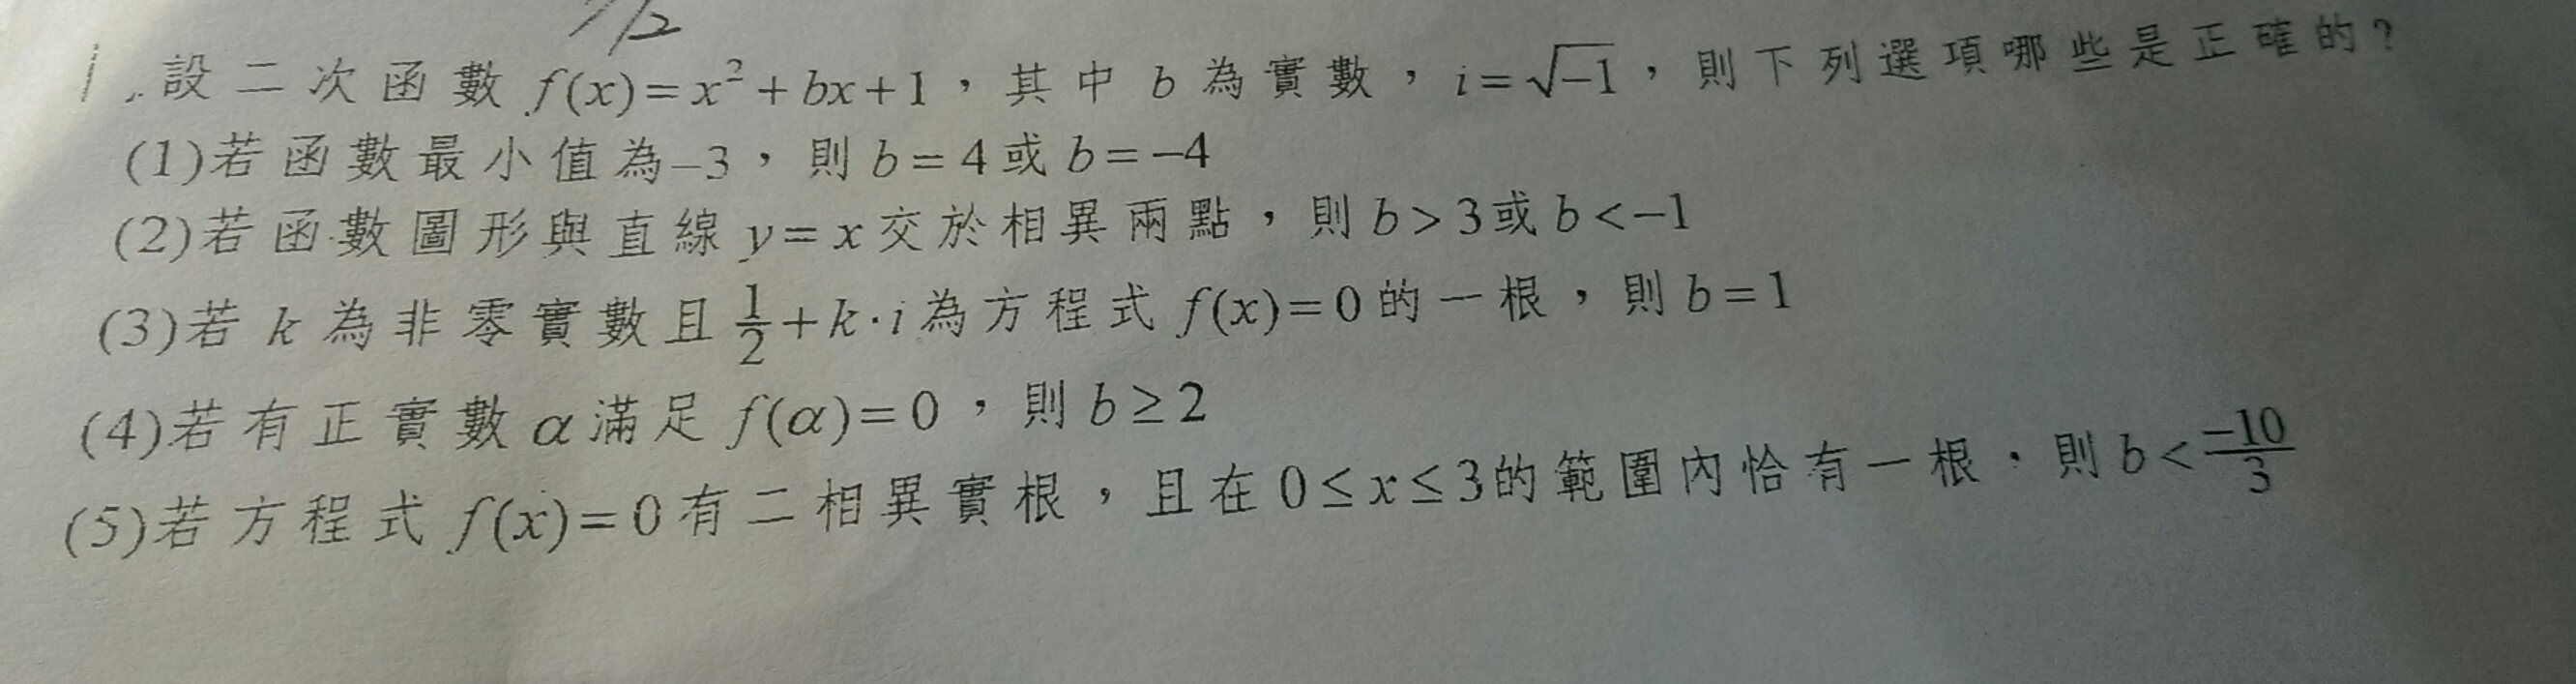 1.設二次函數 f(x)=x²+bx+1，其中 b 為實數，i=√-1，則下列選項哪些是正確的？
(1)若函數最小值為-3，則 b=4或 b=-4
(2)若函數圖形與直線 y=x交於相異兩點，則 b>3或 b<-1
(3)若 k 為非零實數且 1/2+k·i為方程式 f(x)=0的一根，則 b=1
(4)若有正實數α滿足 f(α)=0，則 b≥2
(5)若方程式 f(x)=0有二相異實根，且在 0≤x≤3的範圍內恰有一根，則 b<-10/3